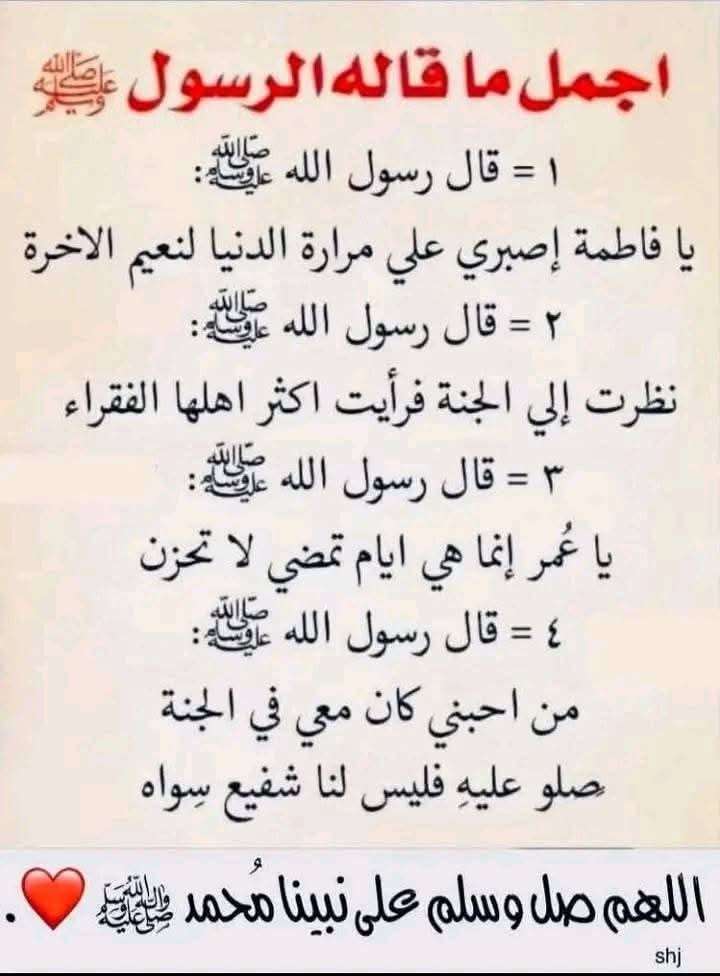 اجمل ما قاله الرسول ﷺ
١ = قال رسول الله ﷺ:
يا فاطمة إصبري علي مرارة الدنيا لنعيم الاخرة
٢ = قال رسول الله ﷺ:
نظرت إلي الجنة فرأيت اكثر اهلها الفقراء
٣ = قال رسول الله ﷺ:
يا عُمر إنما هي ايام تمضي لا تحزن
٤ = قال رسول الله ﷺ:
من احبني كان معي في الجنة
صلو عليهِ فليس لنا شفيع سِواه
اللهم صل وسلم على نبينا مُحمد ﷺ ❤️.
shj